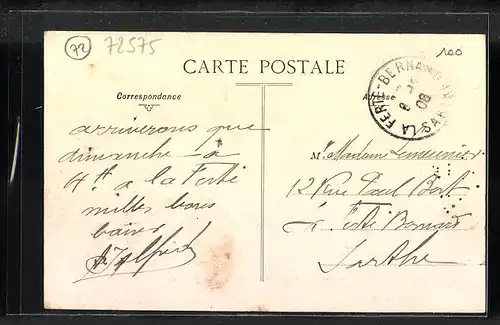 72
72575
100
CARTE POSTALE
Correspondance
Adresse
LA FERTE-BERNARD
SARTHE
8
08
arriverons que
dimanche à
4h a la Ferté
milles bons
M Madame
12 Rue Paul Bert
à Ferté Bernard
Sarthe